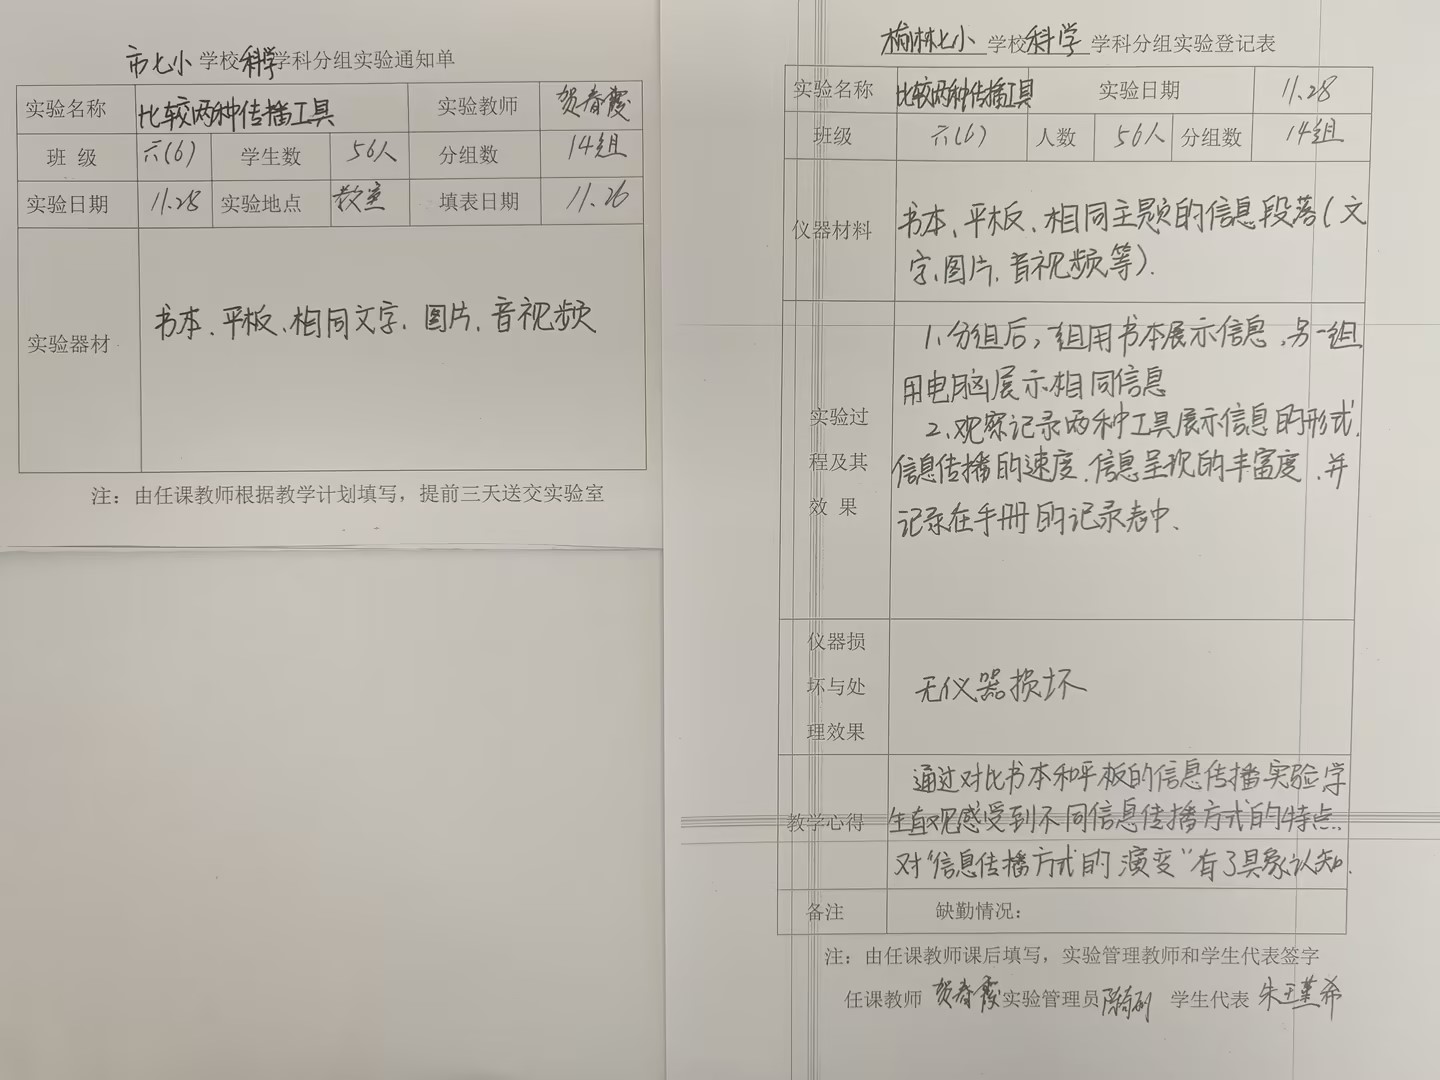 市七小 学校 科学 学科分组实验通知单
实验名称 比较两种传播工具 实验教师 贺春霞
班 级 六(6) 学生数 56人 分组数 14组
实验日期 11.28 实验地点 教室 填表日期 11.26
实验器材 书本、平板、相同文字、图片、音视频
注：由任课教师根据教学计划填写，提前三天送交实验室
榆林七小 学校 科学 学科分组实验登记表
实验名称 比较两种传播工具 实验日期 11.28
班级 六(6) 人数 56人 分组数 14组
仪器材料
书本、平板、相同主题的信息段落(文
字、图片、音视频等).
实验过
程及其
效 果
1、分组后，一组用书本展示信息，另一组
用电脑展示相同信息
2、观察记录两种工具展示信息的形式、
信息传播的速度、信息呈现的丰富度，并
记录在手册的记录表中、
仪器损
坏与处
理效果
无仪器损坏
教学心得
通过对比书本和平板的信息传播实验学
生直观感受到不同信息传播方式的特点.
对“信息传播方式的演变”有了具象认知.
备注 缺勤情况：
注：由任课教师课后填写，实验管理教师和学生代表签字
任课教师 贺春霞 实验管理员 学生代表